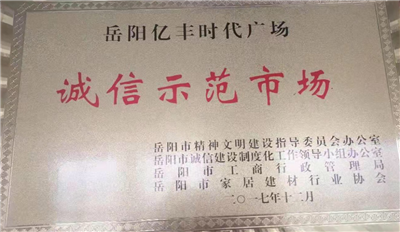 岳阳亿丰时代广场
诚信示范市场
岳阳市精神文明建设指导委员会办公室
岳阳市诚信建设制度化工作领导小组办公室
岳阳市工商行政管理局
岳阳市家居建材行业协会
二〇一七年十二月